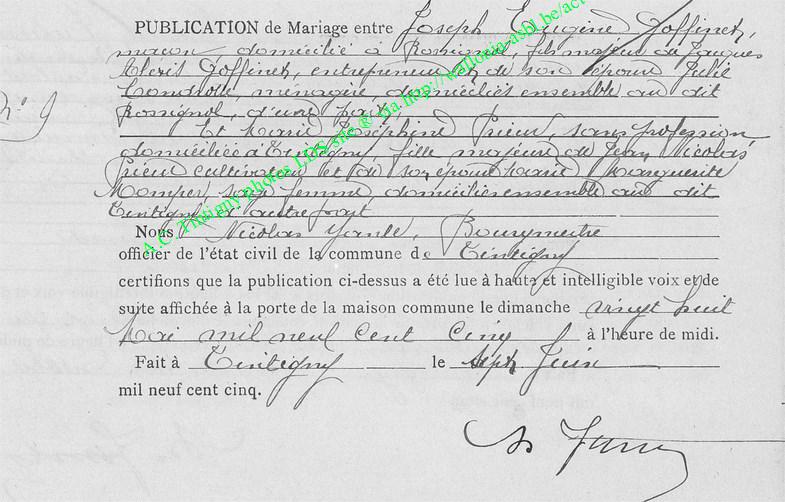 PUBLICATION de Mariage entre Joseph Eugène Goffinet,
maçon domicilié à Rossignol, fils majeur de Jacques
Alexis Goffinet, entrepreneur et de son épouse Julie
ménagère domiciliés ensemble au dit
N° 9
Rossignol, d'une part
Et Marie Joséphine Prieur, sans profession
domiciliée à Tintigny, fille majeure de Jean Nicolas
Prieur cultivateur et de son épouse Marie Marguerite
sa femme domiciliés ensemble au dit
Tintigny d'autre part
Nous Nicolas Bourgmestre
officier de l'état civil de la commune de Tintigny
certifions que la publication ci-dessus a été lue à haute et intelligible voix et de
suite affichée à la porte de la maison commune le dimanche vingt huit
Mai mil neuf cent cinq à l'heure de midi.
Fait à Tintigny le sept Juin
mil neuf cent cinq.
A.C. Tintigny photos LDS site ® via http://wallonia-asbl.be/act